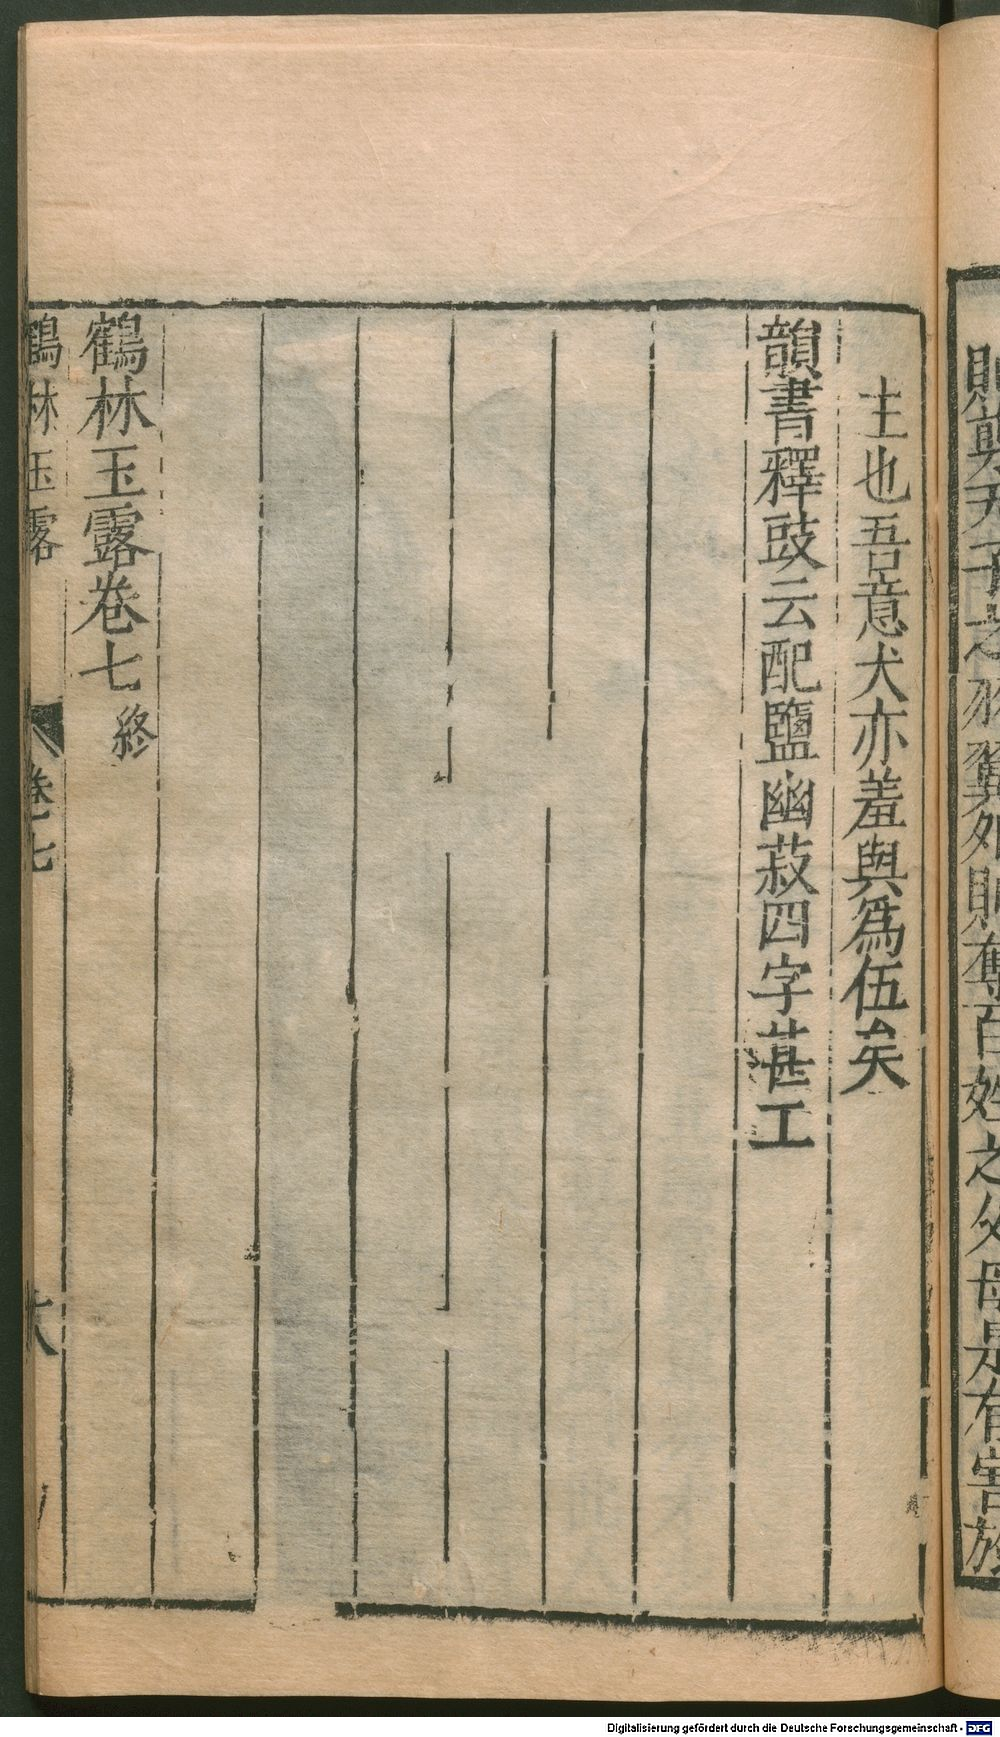 賊剪天子之羽翼外賊奪百姓之父母是有害於
主也吾意犬亦羞與爲伍矣
韻書釋豉云配鹽幽菽四字甚工
鶴林玉露卷七終
鶴林玉露 卷七 十八
Digitalisierung gefördert durch die Deutsche Forschungsgemeinschaft - DFG